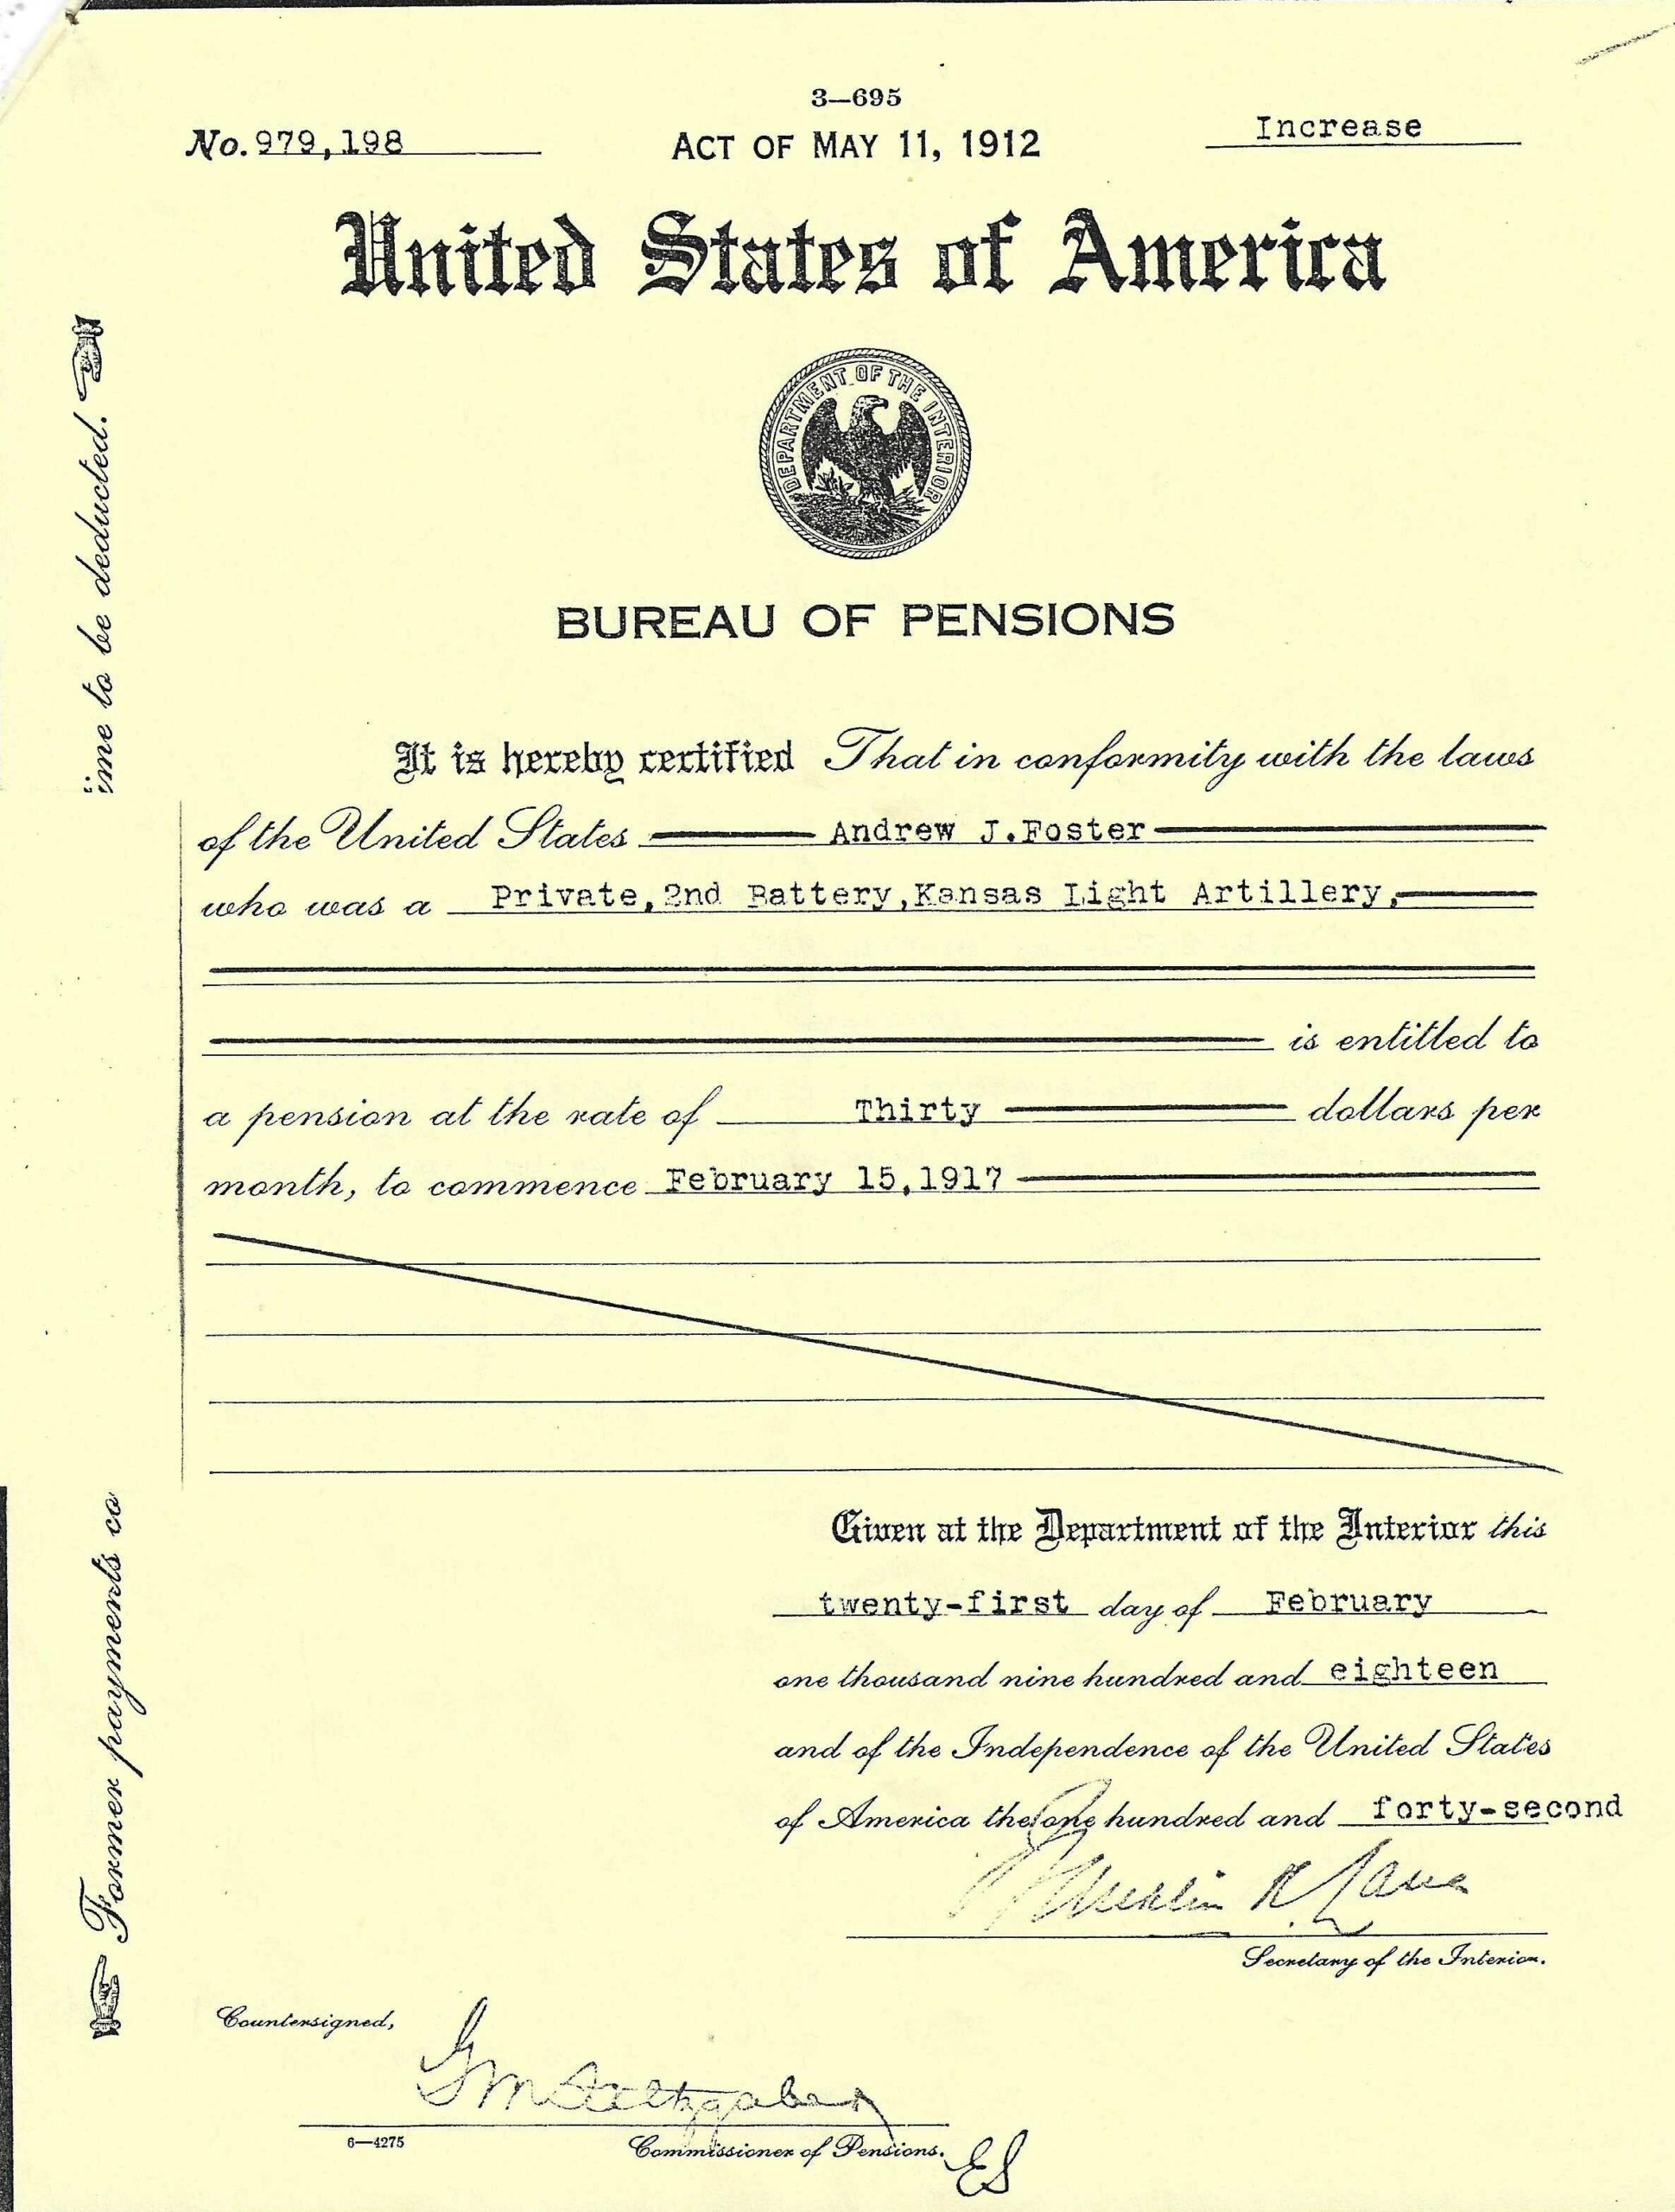 3—695
No. 979,198
ACT OF MAY 11, 1912
Increase
United States of America
DEPARTMENT OF THE INTERIOR
BUREAU OF PENSIONS
It is hereby certified That in conformity with the laws
of the United States Andrew J.Foster
who was a Private, 2nd Battery, Kansas Light Artillery,
is entitled to
a pension at the rate of Thirty dollars per
month, to commence February 15, 1917
Given at the Department of the Interior this
twenty-first day of February
one thousand nine hundred and eighteen
and of the Independence of the United States
of America the one hundred and forty-second
Franklin K Lane
Secretary of the Interior.
Countersigned,
G M Saltzgaber
6—4275
Commissioner of Pensions.
ES
Former payments co
ime to be deducted.